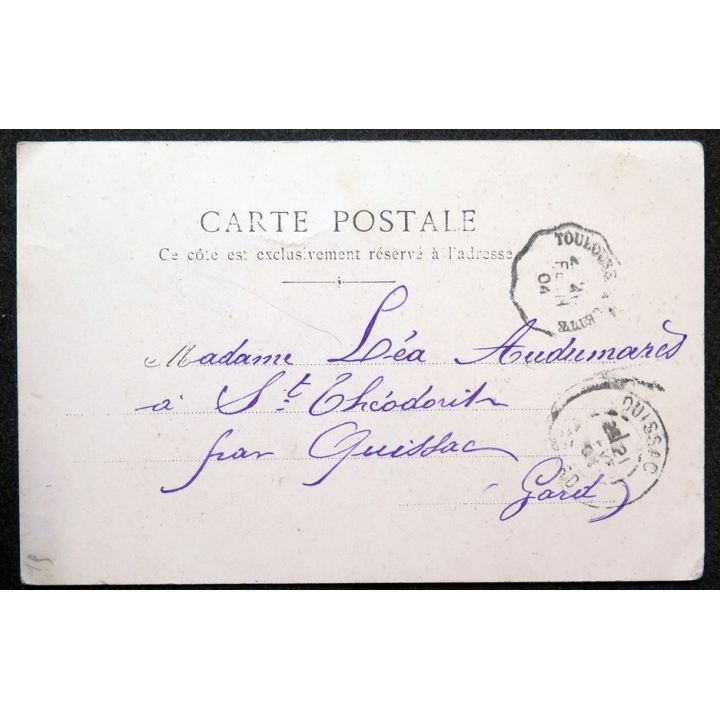 CARTE POSTALE
Ce côté est exclusivement réservé à l'adresse
TOULOUSE
04
Madame Léa Audumarès
à St Théodorit
par Quissac
(Gard)
QUISSAC
21